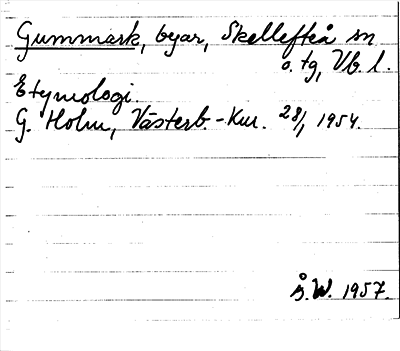 Gummark, byar, Skellefteå sn
o. tg, Vb. l.
Etymologi.
G. Holm, Västerb.-Kur. 28/1 1954.
Å.W. 1957.